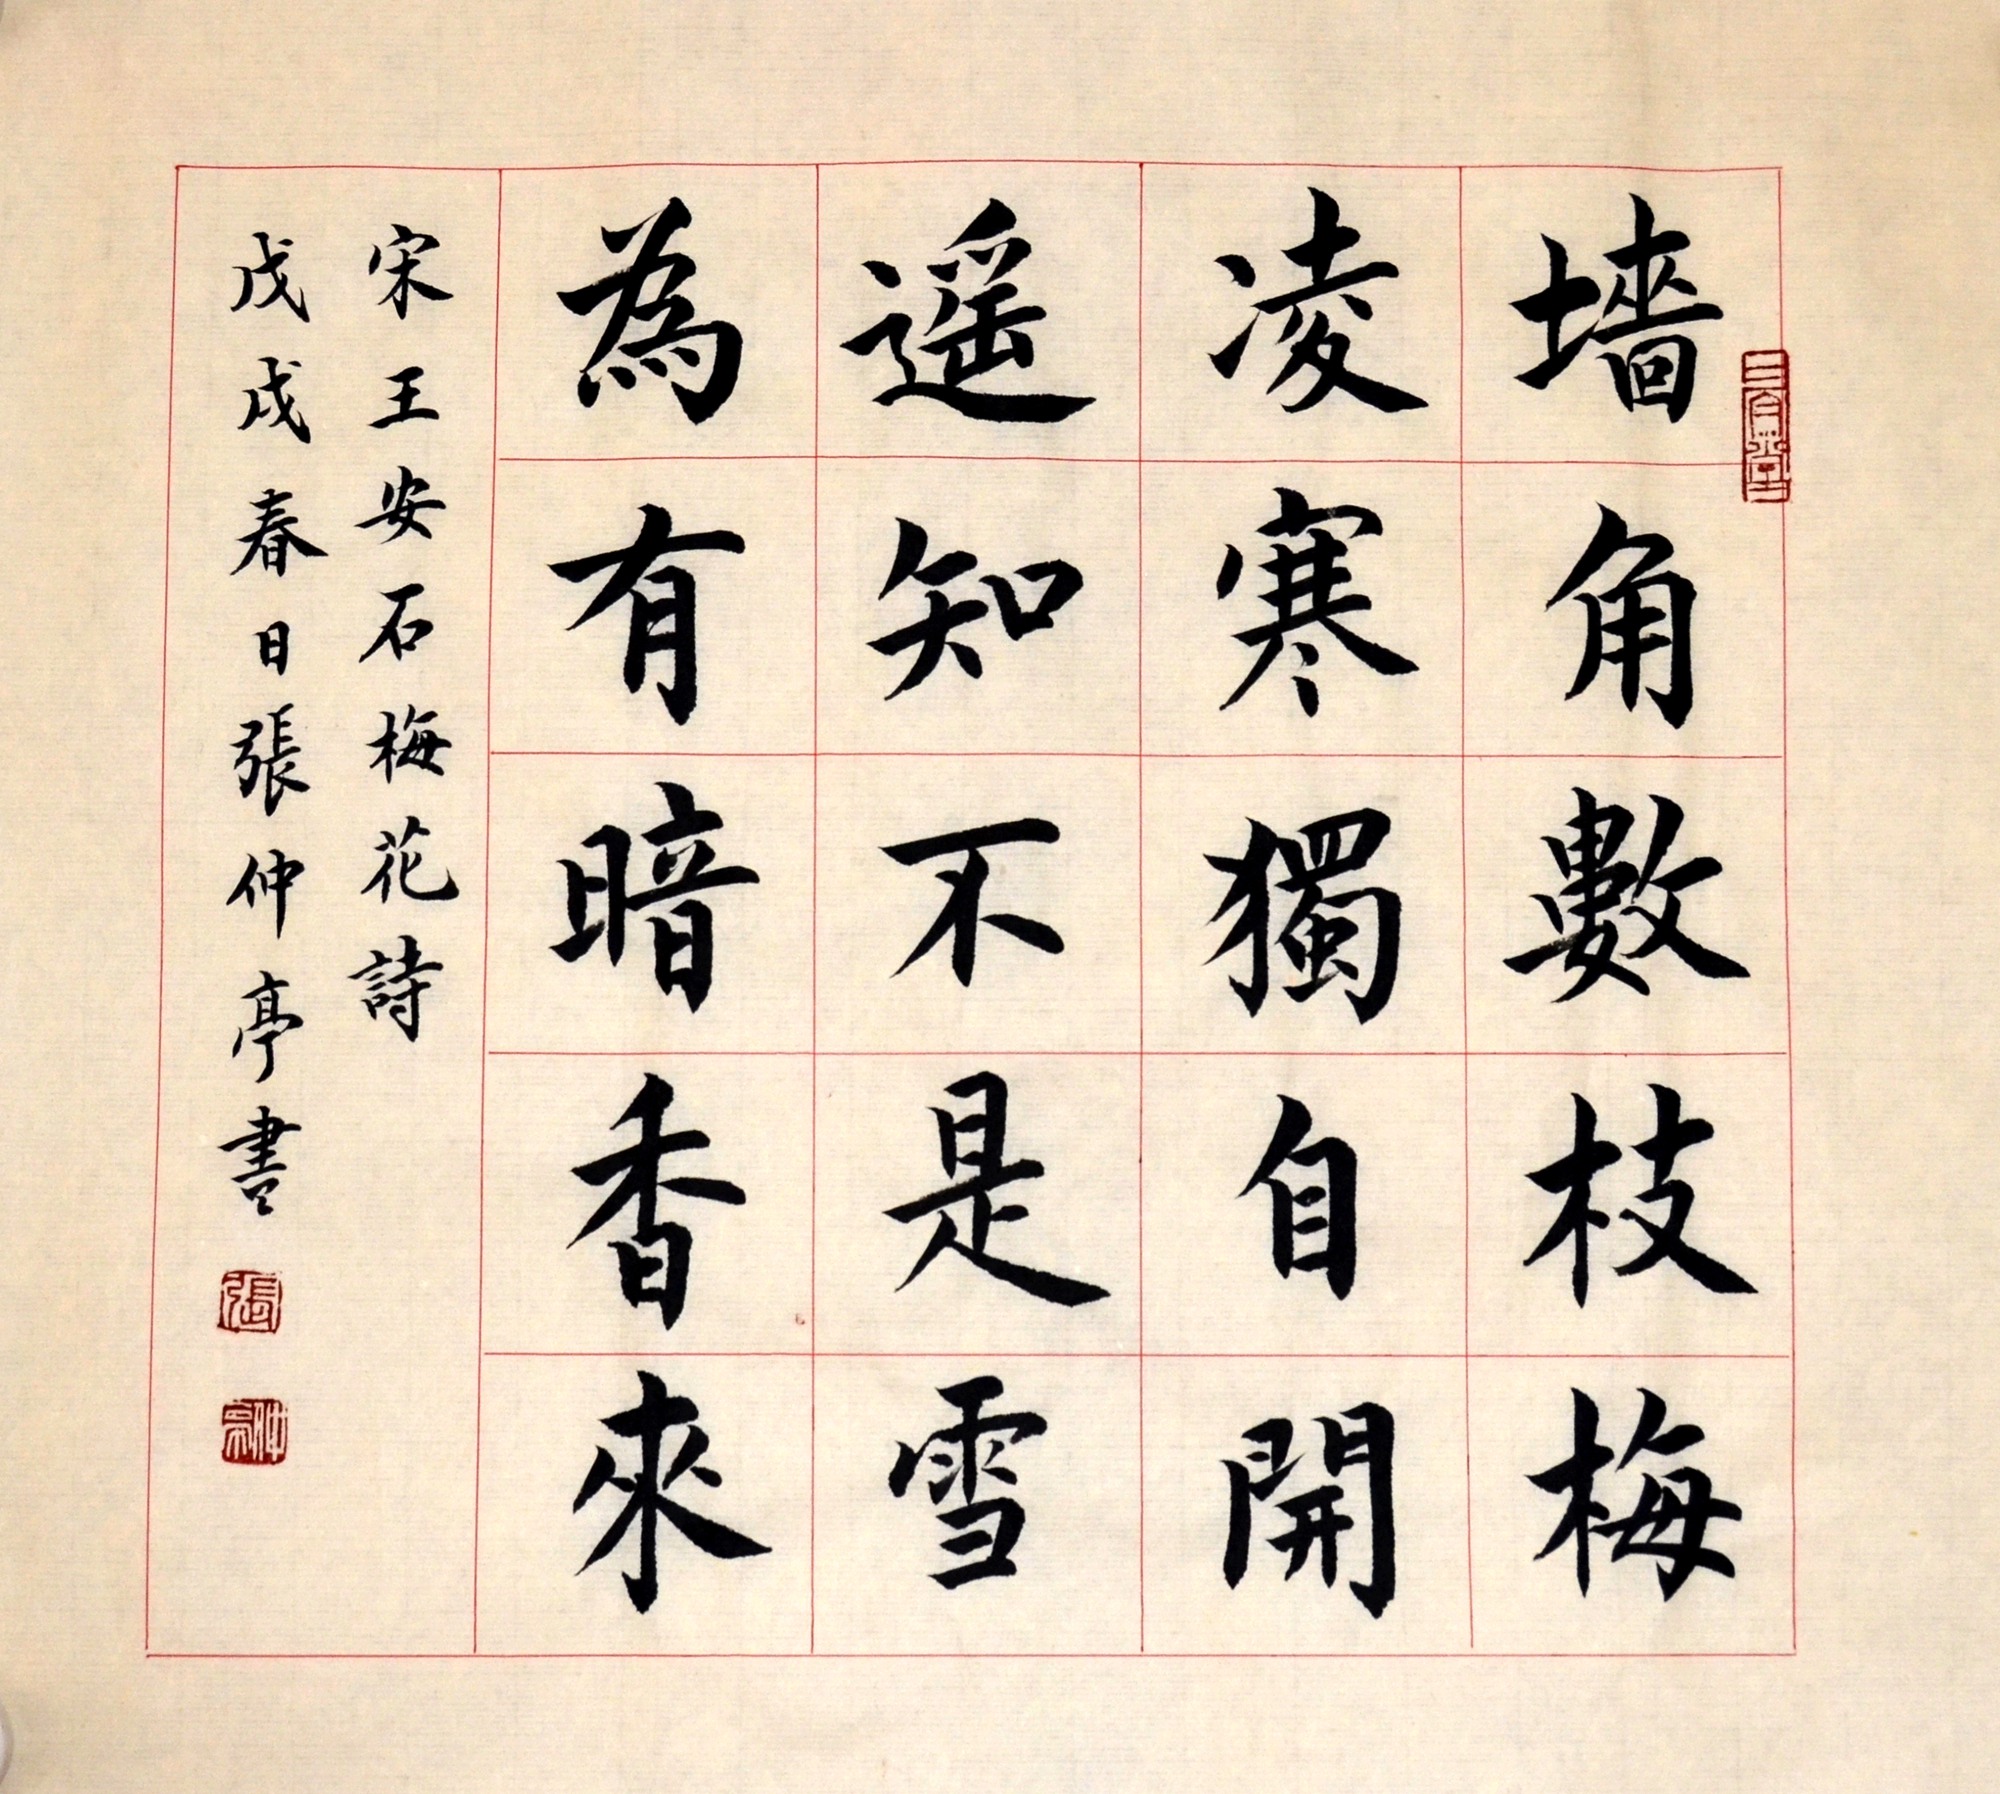 墻角數枝梅
凌寒獨自開
遥知不是雪
為有暗香來
宋王安石梅花詩
戊戌春日張仲亭書
張